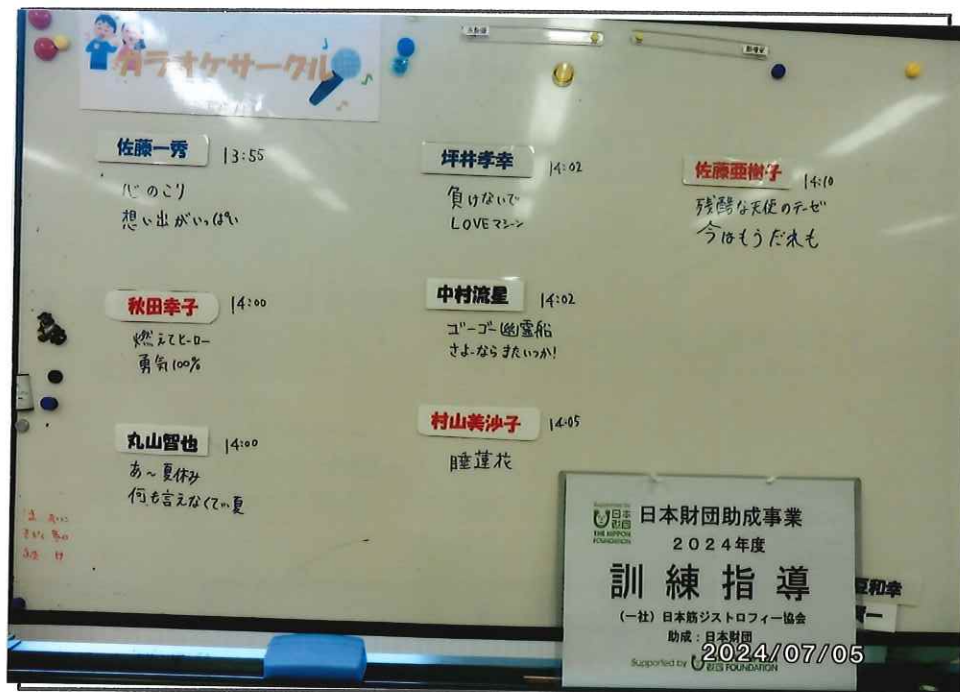 カラオケサークル
佐藤一秀 13:55
心のこり
想い出がいっぱい
秋田幸子 14:00
燃えてヒーロー
勇気100%
丸山智也 14:00
あ~夏休み
何も言えなくて…夏
坪井孝幸 14:02
負けないで
LOVEマシーン
中村流星 14:02
ゴーゴー幽霊船
さよーならまたいつか!
村山美沙子 14:05
睡蓮花
佐藤亜樹子 14:10
残酷な天使のテーゼ
今はもうだれも
Supported by
日本財団
THE NIPPON
FOUNDATION
日本財団助成事業
2024年度
訓練指導
(一社)日本筋ジストロフィー協会
助成:日本財団
Supported by 日本財団 FOUNDATION
2024/07/05
和幸
一